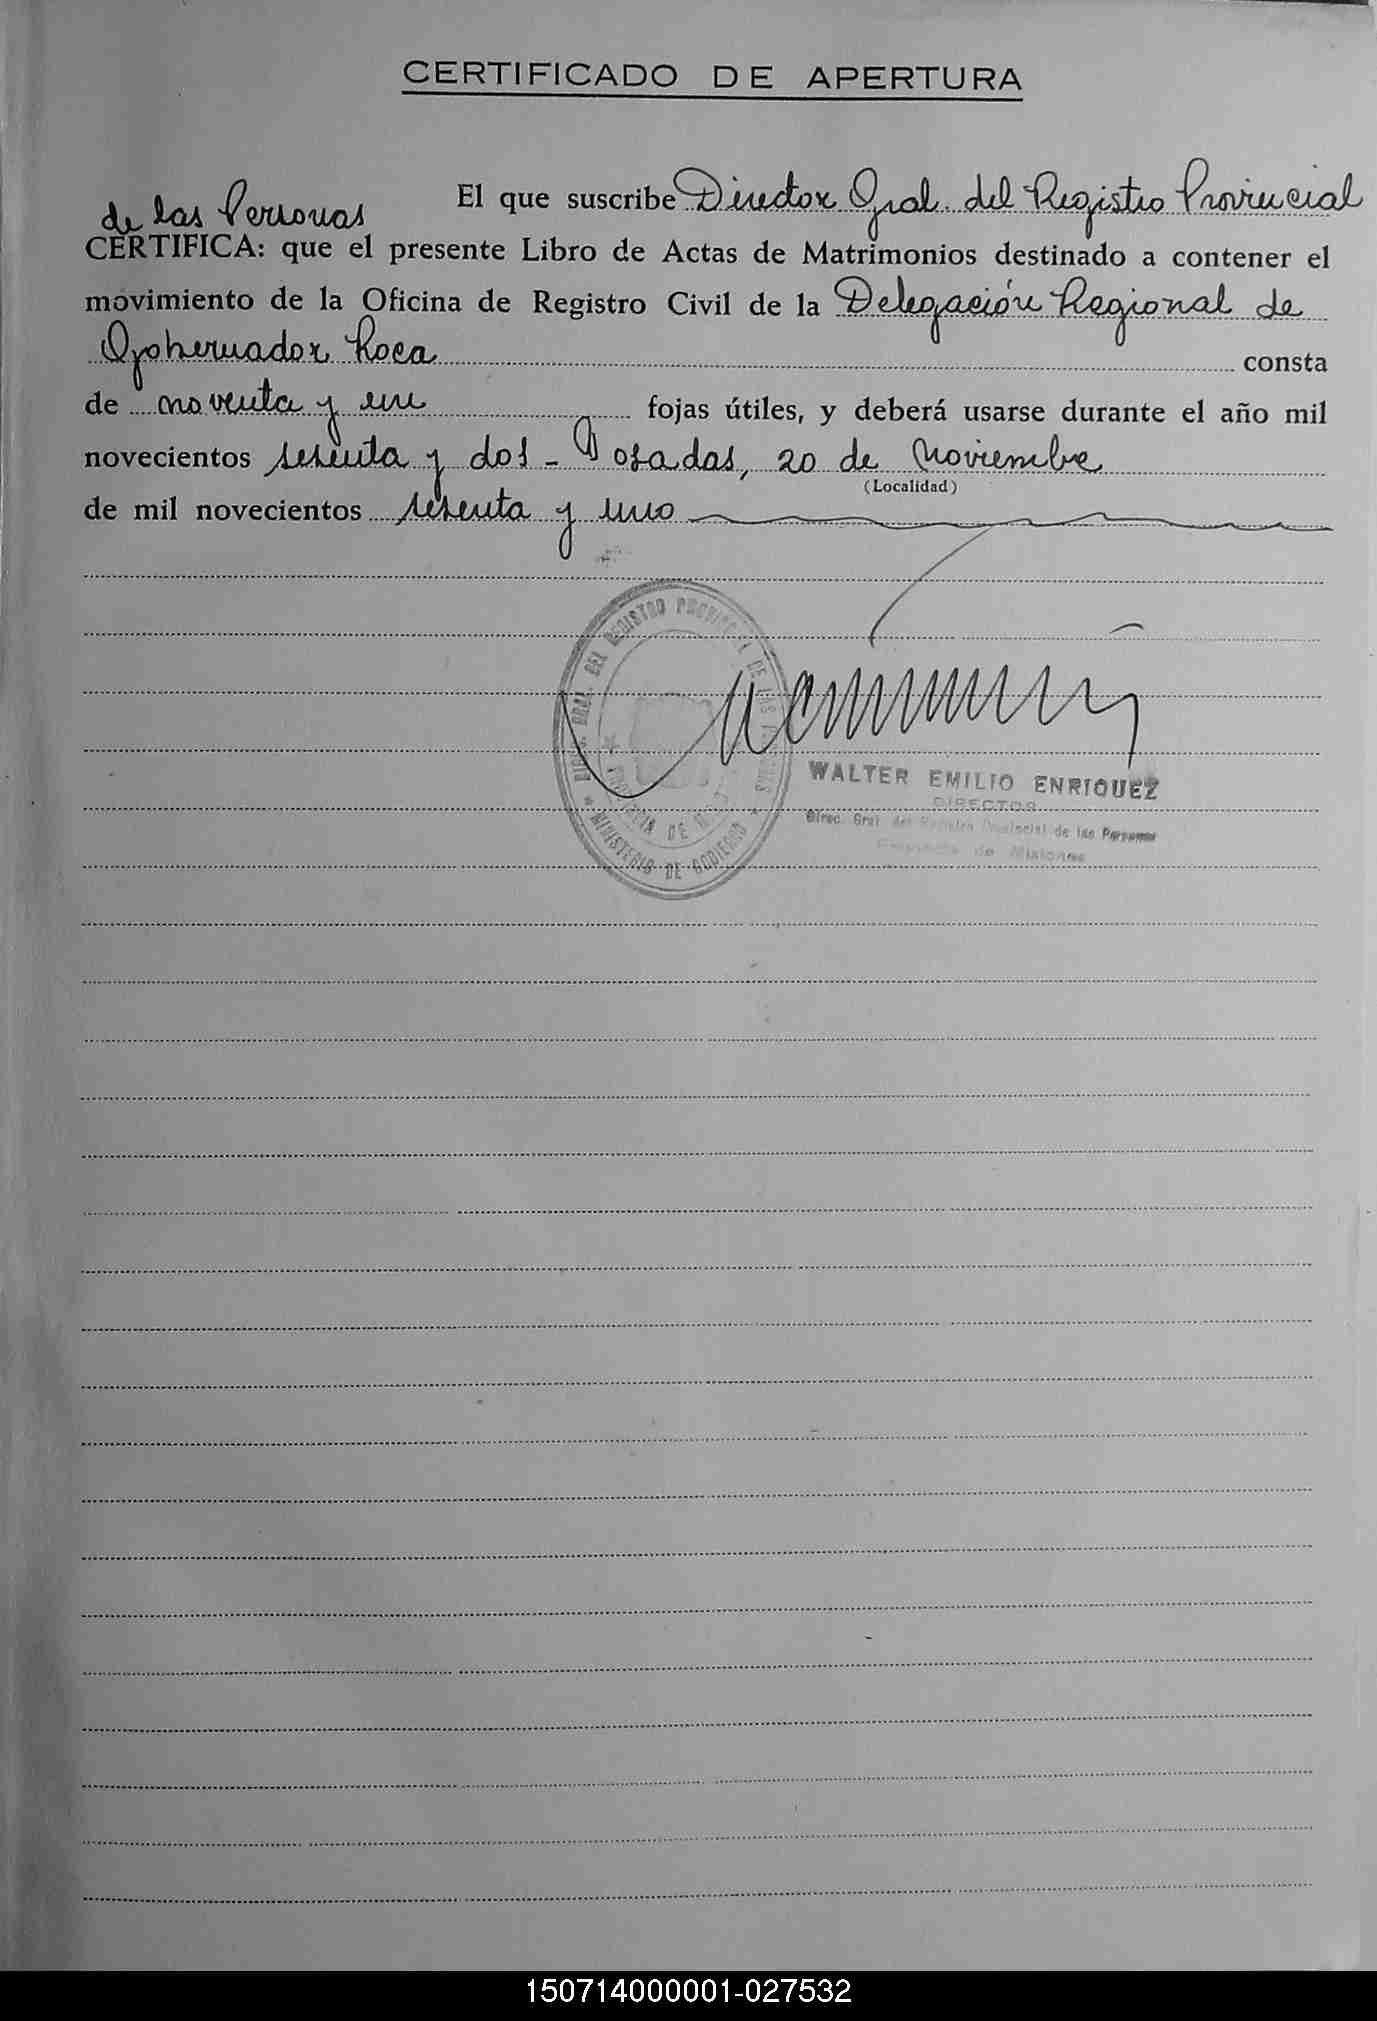 CERTIFICADO DE APERTURA
El que suscribe Director Gral. del Registro Provincial
de las Personas
CERTIFICA: que el presente Libro de Actas de Matrimonios destinado a contener el
movimiento de la Oficina de Registro Civil de la Delegación Regional de
Gobernador Roca consta
de noventa y un fojas útiles, y deberá usarse durante el año mil
novecientos sesenta y dos - Posadas, 20 de Noviembre
(Localidad)
de mil novecientos sesenta y uno
DIREC. GRAL. DEL REGISTRO PROVINCIAL DE LAS PERSONAS
* MINISTERIO DE GOBIERNO *
PROVINCIA DE
WALTER EMILIO ENRIQUEZ
DIRECTOR
Direc. Gral. del Registro Provincial de las Personas
Provincia de Misiones
150714000001-027532